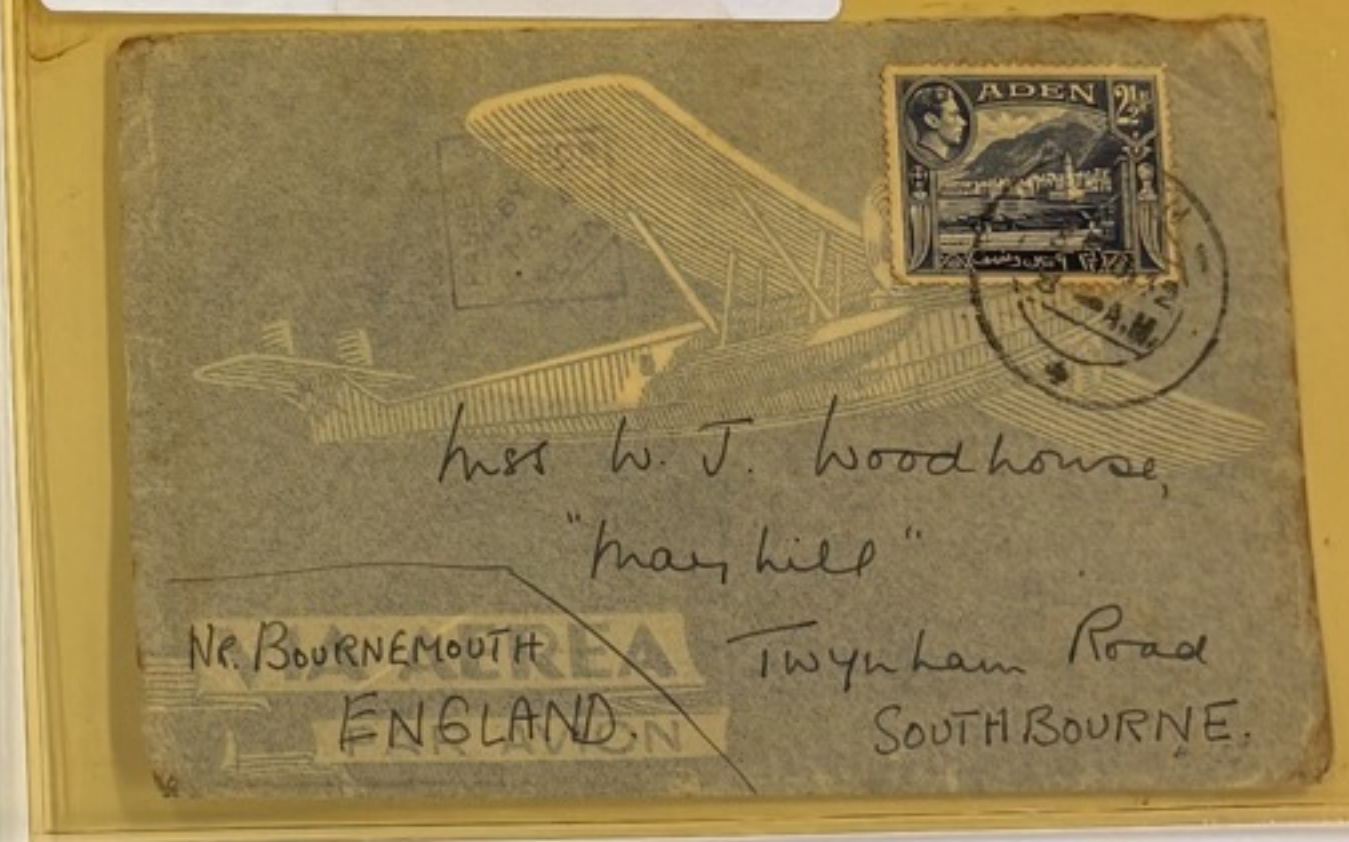 ADEN 2½
A.M.
Miss W. J. Woodhouse,
"Mayhill"
Twynham Road
SOUTHBOURNE.
NR. BOURNEMOUTH
ENGLAND.
VIA AEREA
PAR AVION